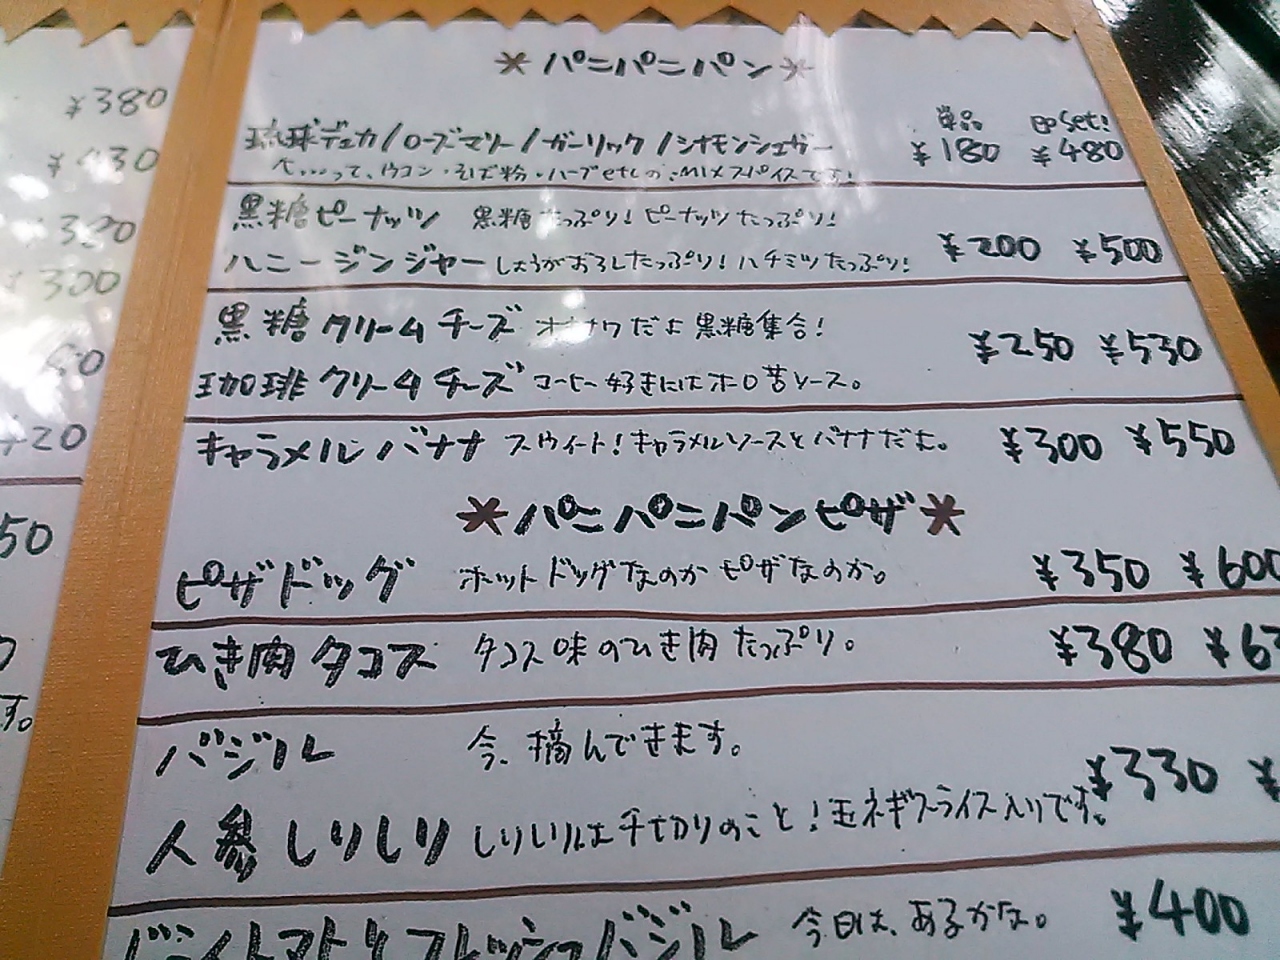 ¥380
¥430
300
420
50
す。
*パニパニパン*
単品 set!
琉球デュカ/ローズマリー/ガーリック/シナモンシュガー ¥180 ¥480
って、ウコン・そば粉・ハーブetcの.MIXスパイスです!
黒糖ピーナッツ 黒糖たっぷり!ピーナッツたっぷり!
ハニージンジャー しょうがおろしたっぷり!ハチミツたっぷり! ¥200 ¥500
黒糖クリームチーズ オキナワだよ黒糖集合! ¥250 ¥530
珈琲クリームチーズ コーヒー好きにはホロ苦ソース。
キャラメルバナナ スウィート!キャラメルソースとバナナだよ。 ¥300 ¥550
*パニパニパンピザ*
ピザドッグ ホットドッグなのかピザなのか。 ¥350 ¥600
ひき肉タコス タコス味のひき肉たっぷり。 ¥380 ¥63
バジル 今、摘んできます。 ¥330 ¥
人参しりしり しりしりは千切りのこと!玉ネギスライス入りです。
トマトとフレッシュバジル 今日は、あるかな。 ¥400